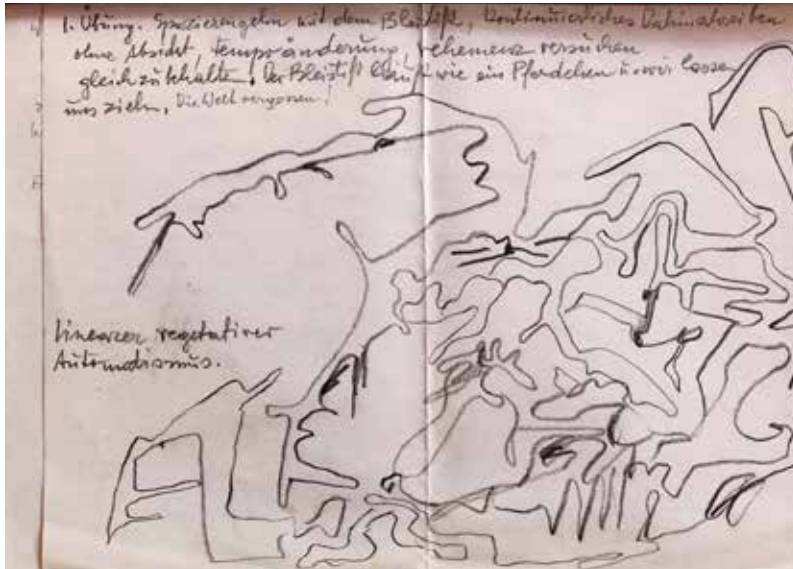 1. Übung. Spazierengehn mit dem Bleistift, kontinuierliches Dahintreiben
ohne Absicht, tempoänderung, vehemenz versuchen
gleich zu behalten. Der Bleistift läuft wie ein Pferdchen u. wir lassen
uns ziehn. Die Welt vergessen!
Linearer vegetativer
Automatismus.